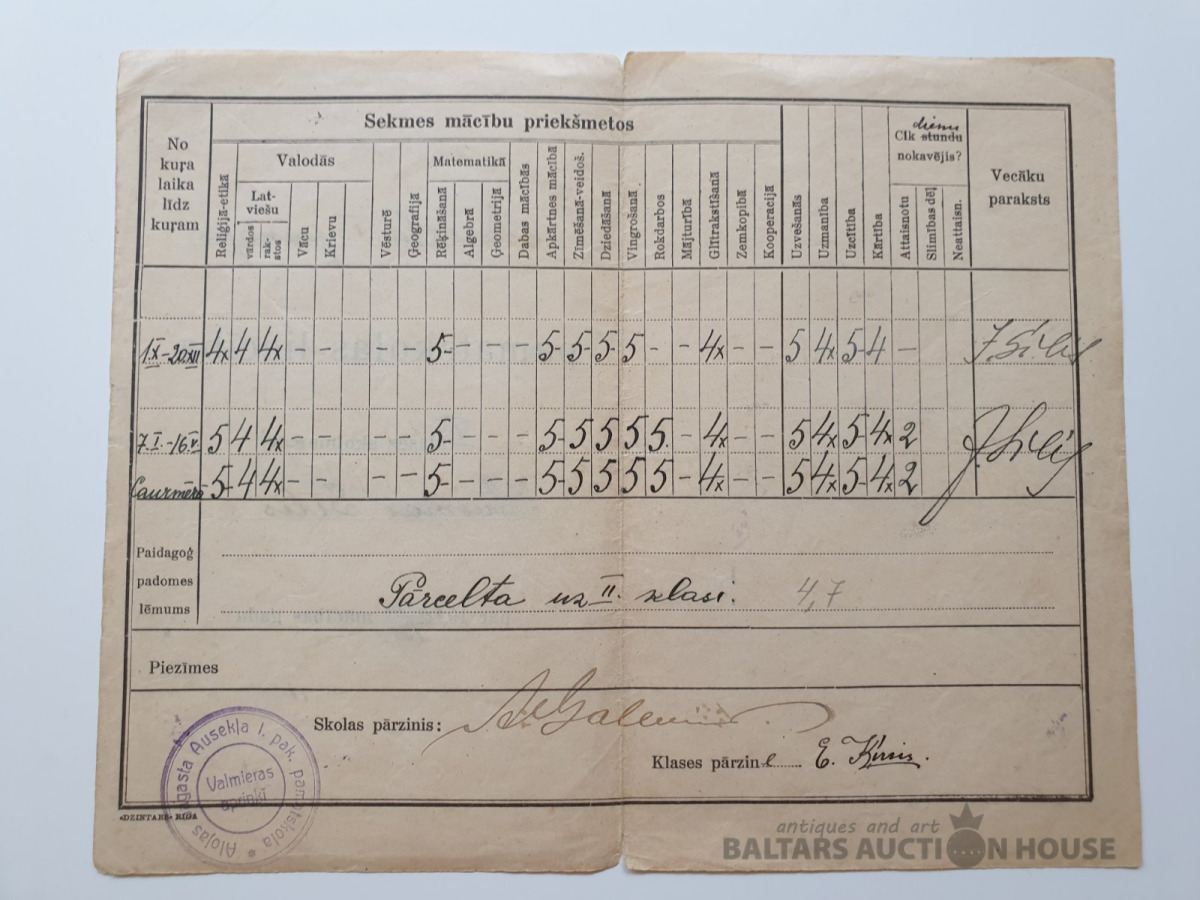 Sekmes mācību priekšmetos
No kuŗa laika līdz kuŗam
Reliģijā-etikā
Valodās
Latviešu
vārdos
rakstos
Vācu
Krievu
Vēsturē
Ģeografijā
Matematikā
Rēķināšanā
Algebrā
Ģeometrijā
Dabas mācībās
Apkārtnes mācībā
Zīmēšanā-veidoš.
Dziedāšanā
Vingrošanā
Rokdarbos
Mājturībā
Glītrakstīšanā
Zemkopībā
Kooperacijā
Uzvešanās
Uzmanība
Uzcītība
Kārtība
dienu
Cik stundu
nokavējis?
Attaisnotu
Slimības dēļ
Neattaisn.
Vecāku
paraksts
1 IX – 20 XII 4x 4 4x – – – – 5- – – – 5- 5- 5- 5 – 4x – – 5 4x 5- 4 –
7. I. – 16 V. 5 4 4x – – – – 5- – – – 5- 5 5 5 5. – 4x – – 5 4x 5- 4x 2
Caurmērā 5- 4 4x – – – – 5- – – – 5- 5 5 5 5 – 4x – – 5 4x 5- 4x 2
Paidagoģ
padomes
lēmums
Pārcelta uz II. klasi. 4,7
Piezīmes
Skolas pārzinis:
Klases pārzine E. Ķirsis.
Alojas pagasta Ausekļa I. pak. pamatskola *
Valmieras
apriņķī
«DZINTARS» RĪGA
antiques and art
BALTARS AUCTION HOUSE